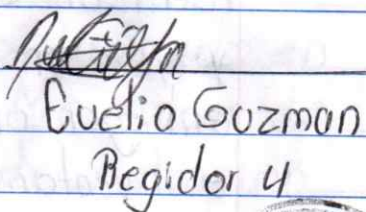 Evelio Guzman
Regidor 4